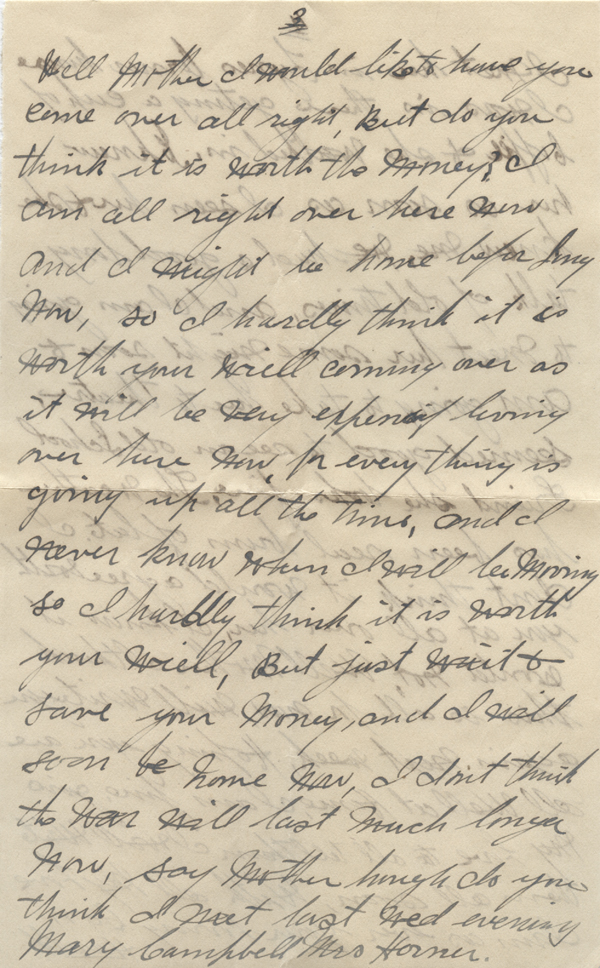 3
Well Mother I would like to have you
come over all right, But do you
think it is worth the Money? I
am all right over here Now
and I might be home befor long
Now, so I hardly think it is
worth your wiell coming over as
it will be very expensif living
over here Now, for everything is
going up all the time, and I
never know when I will be Moving
so I hardly think it is worth
your wiell, But just wait &
save your Money, and I will
soon be home Now, I dont think
the war will last much longer
Now, say Mother hough do you
think I met last wed evening
Mary Campbell Mrs Horner.